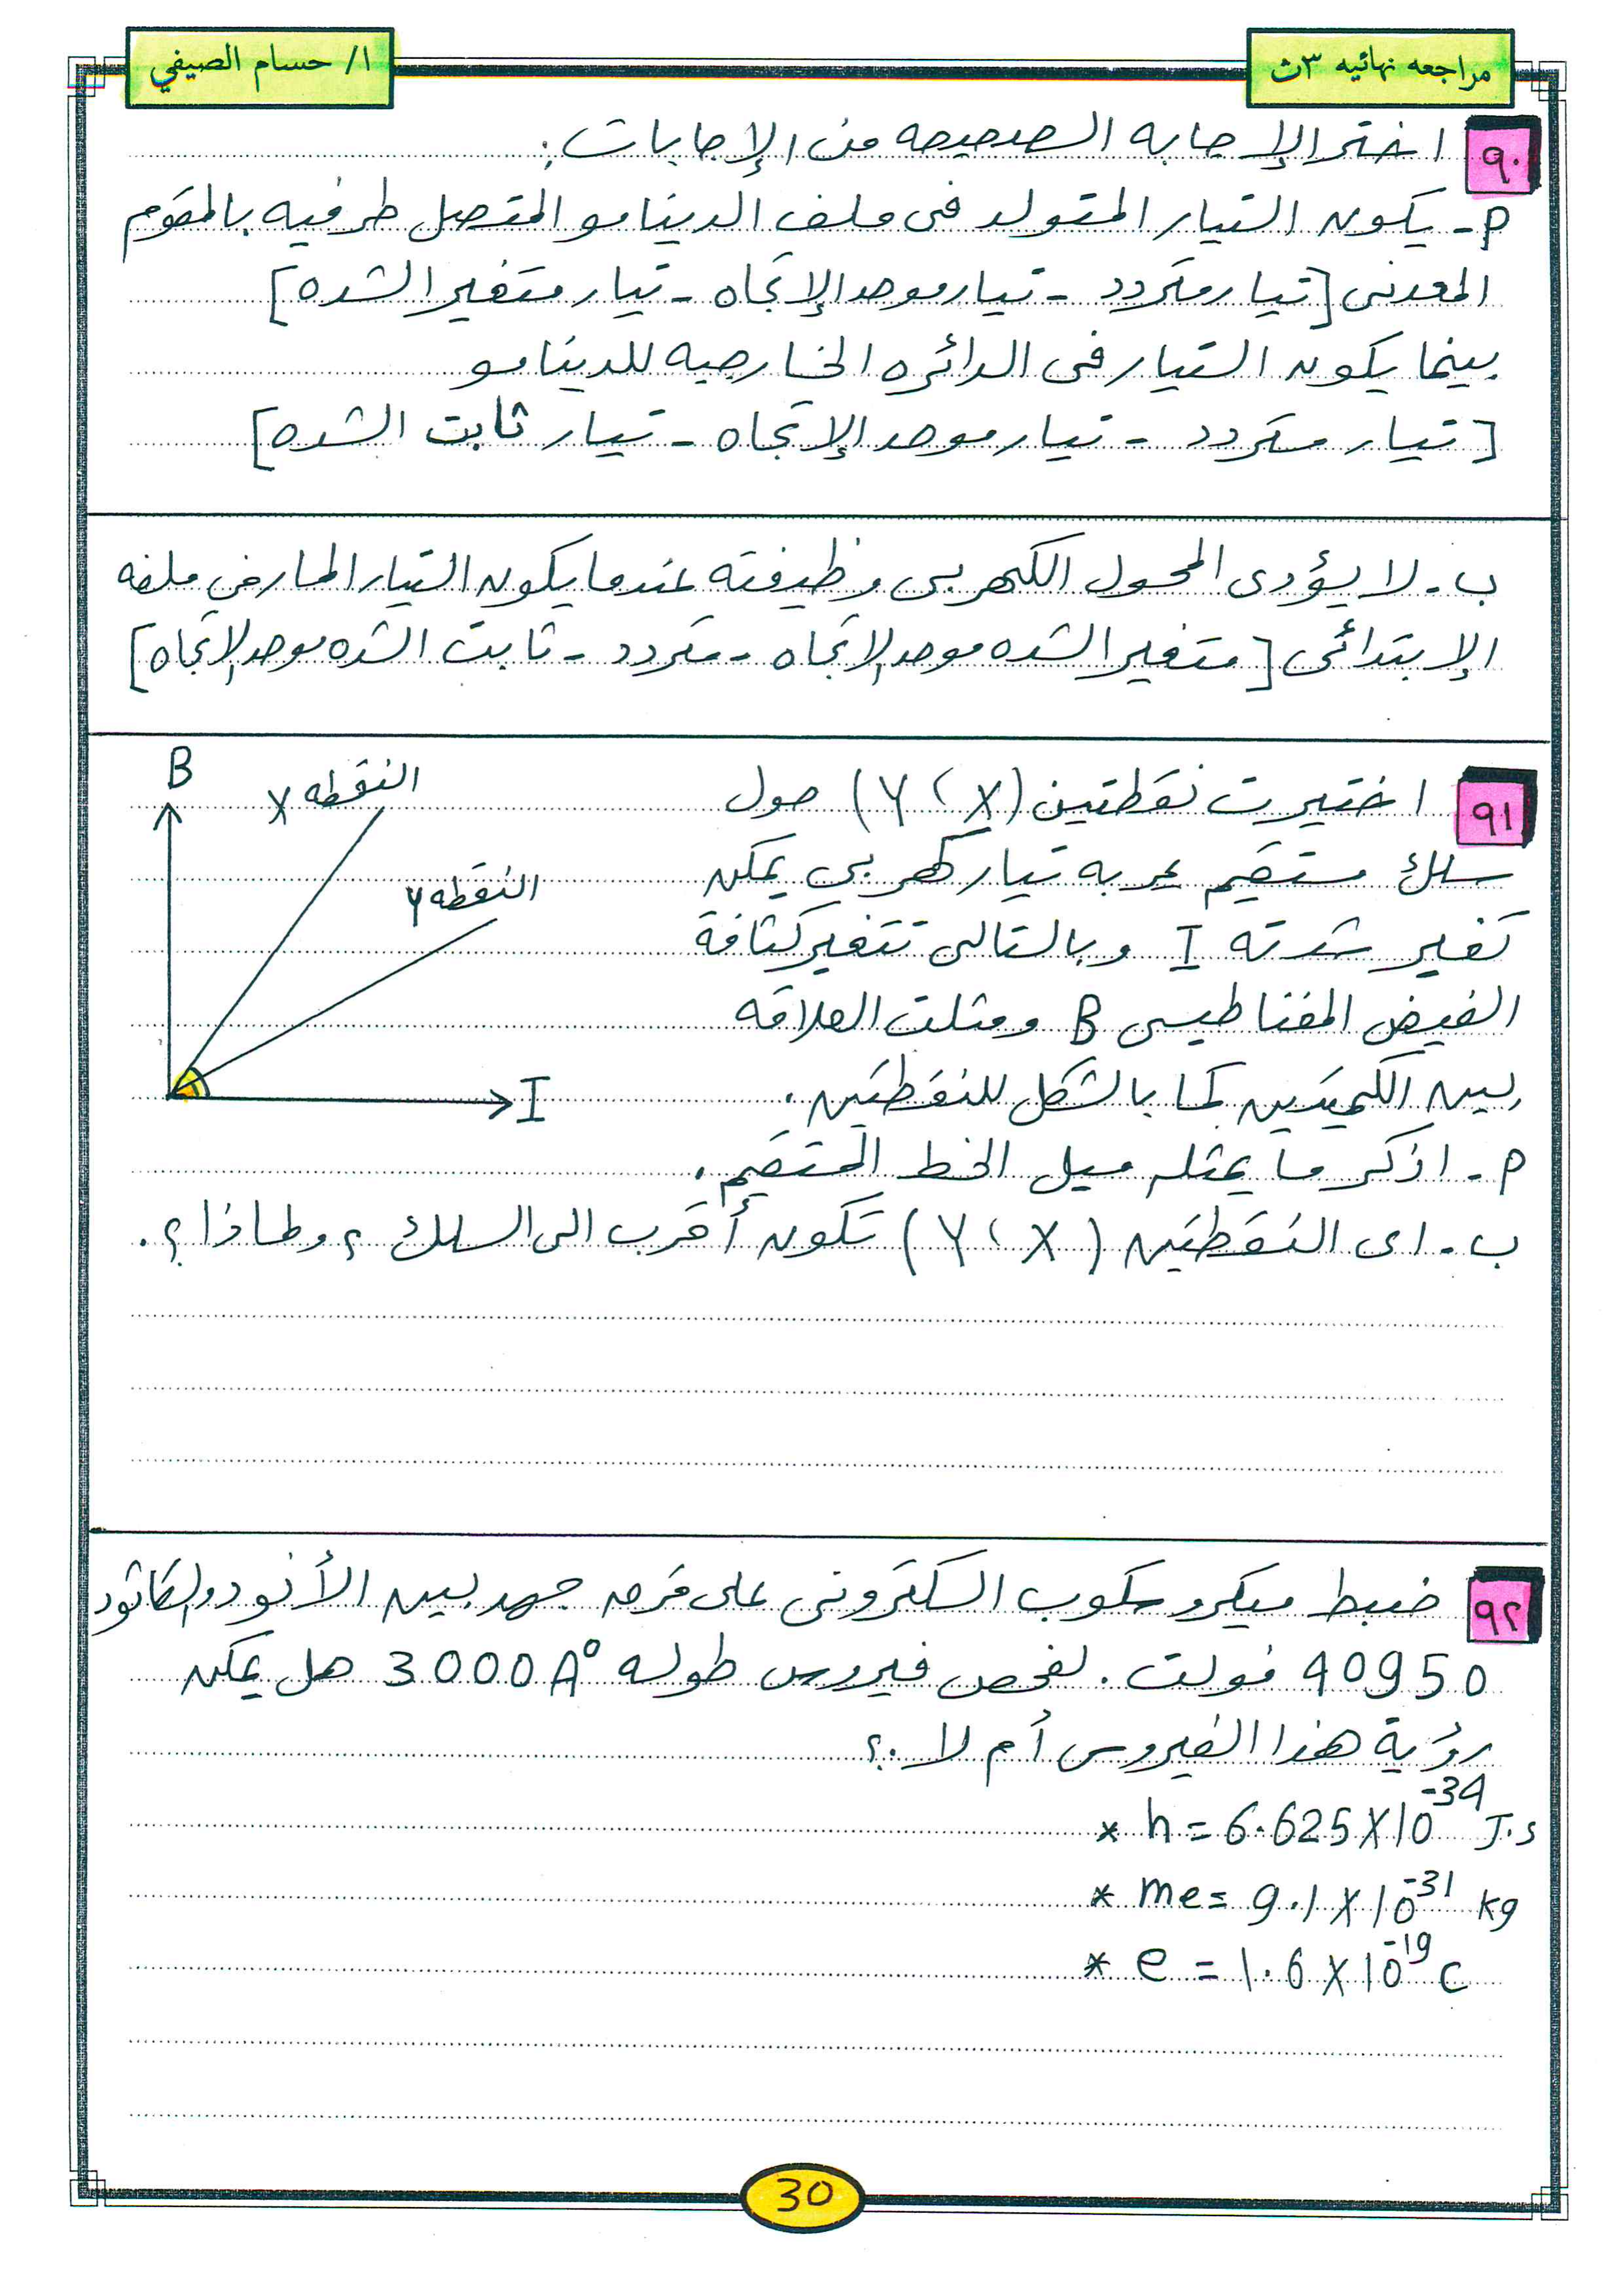 مراجعه نهائيه ٣ث
ا/ حسام الصيفي
٩٠ اختر الإجابه الصحيحه من الإجابات:
م- يكون التيار المتولد فى ملف الدينامو المتصل طرفيه بالمقوم
المعدنى [تيار متردد - تيار موحد الإتجاه - تيار متغير الشده]
بينما يكون التيار فى الدائره الخارجيه للدينامو
[تيار متردد - تيار موحد الإتجاه - تيار ثابت الشده]
ب- لا يؤدى المحول الكهربى وظيفته عندما يكون التيار المار في ملفه
الإبتدائى [متغير الشده موحد الاتجاه - متردد - ثابت الشده موحد الاتجاه]
٩١ اختيرت نقطتين (X ، Y) حول
سلك مستقيم يمر به تيار كهربي يمكن
تغير شدته I وبالتالى تتغير كثافة
الفيض المغناطيسى B ومثلت العلاقه
بين الكميتين كما بالشكل للنقطتين.
B
النقطه X
النقطه Y
I
م- اذكر ما يمثله ميل الخط المستقيم.
ب- اى النقطتين (X ، Y) تكون أقرب الى السلك ؟ ولماذا ؟.
٩٢ ضبط ميكروسكوب الكترونى على فرق جهد بين الأنود والكاثود
40950 فولت. لفحص فيروس طوله 3000A° هل يمكن
رؤية هذا الفيروس أم لا .؟
* h = 6.625X10^-34 J.s
* me = 9.1 X 10^-31 kg
* e = 1.6 X 10^-19 C
30